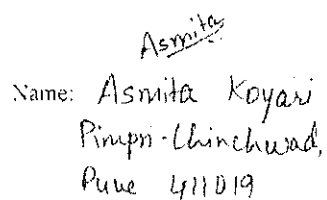 Asmita
Name: Asmita Koyari
Pimpri-Chinchwad,
Pune 411019